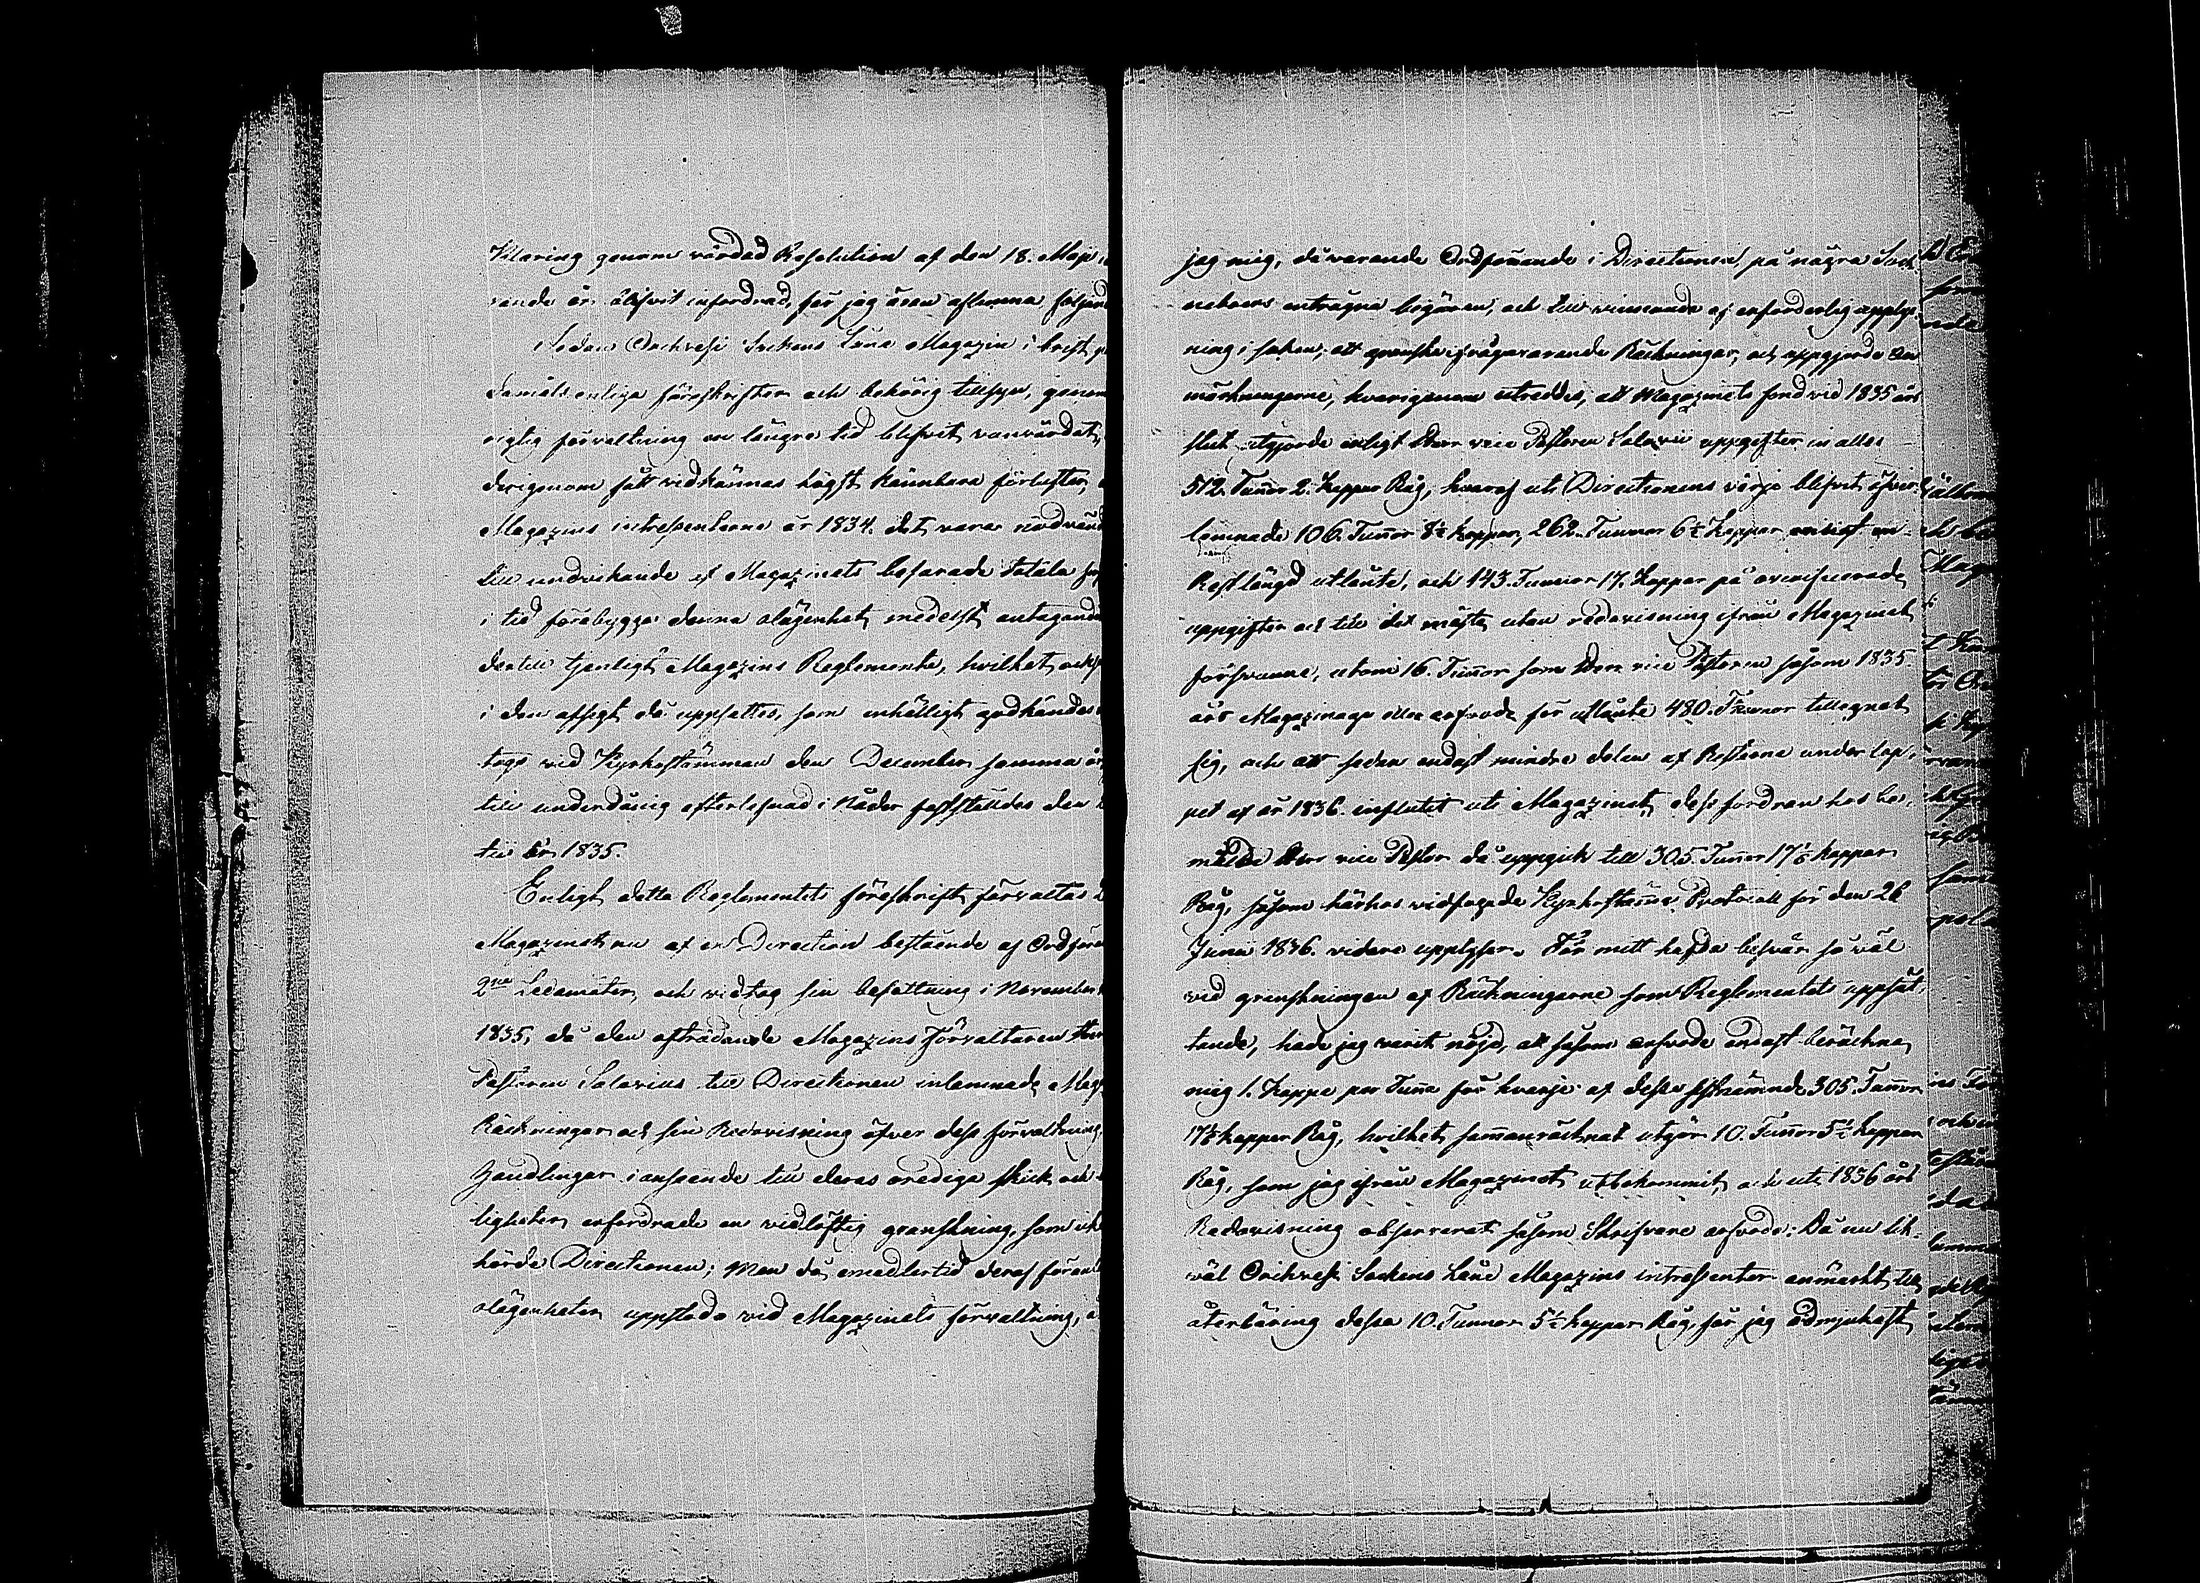 klaring genom vördad Resolution af den 18. Maji
rande år blifvit infordrad, får jag äran aflemna följand
Sedan Orihvesi Sockens Låne Magazin i brist
damåls enliga föreskrifter och behörig tillsyn, genom
rigtig förvaltning en längre tid blifvit vanvårdat,
derigenom fått vidkännas högst kännbara förluster,
Magazins intressenterne år 1834. det vara nödvänd
till undvikande af Magazinets befarade totala
i tid förebygga denna olägenhet, medelst antagande
der till tjenligt Magazins Reglemente, hvilket ock
i den afsigt då uppsattes, som enhälligt godkändes
togs vid Kyrkostämman den December samma år
till underdånig efterlefnad i Nåder fastställdes den
tii år 1835.
Enligt detta Reglementets föreskrift förvaltas
Magazinet nu af en Direction bestående af Ordföra
2ne Ledamöter, och vidtog sin befattning i November
1835, då den afträdande Magazins Förvaltaren Herr
Pastoren Salovius till Directionen inlemnade Mag
Räckningar och sin Redovisning öfver dess förvaltning,
Handlingar i anseende till deras oredige skick och
ligheter, erfordrade en vidlöftig granskning, som
hörde Directionen; Men då emedlertid deraf föran
olägenheter uppstodo vid Magazinets förvaltning,
jag mig, då varande Ordförande i Directionen, på några Sock
neboers enträgna begäran, och till vinnande af erforderlig upplys
ning i saken, att granska ifrågavarande Räckningar, och uppgjorde An
märkningarne, hvarigenom utreddes, att Magazinets fond vid 1835 års
slut utgjorde enligt Herr vice Pastoren Salovii uppgifter in alles
512. Tunnor 2. kappar Råg, hvaraf uti Directionens värjo blifvit öfver
lemnade 106. Tunnor 8½ kappar, 262. Tunnor 6½ kappar enligt en
Restlängd utlånte, och 143. Tunnor 17. kappar på
uppgifter och till det mästa utan redovisning ifrån Magazinet
försvunne, utom 16. Tunnor som Herr vice Pastoren såsom 1835.
års Magazinage eller arfvode för utlånte 480. Tunnor tillegnat
sig, och att sedan endast mindre delen af Resterne under lop
pet af år 1836. influtit uti Magazinet, dess fordran hos be
mälde Herr vice Pastor då uppgick till 305. Tunnor 17½ kappar
Råg, såsom härhos vidfogade Kyrkostämme Protocoll för den 26
Junii 1836. vidare upplyser. För mitt hafda besvär så väl
vid granskningen af Räckningarne som Reglementet uppsät
tande, hade jag varit nöjd, att såsom arfvode endast beräckna
mig 1. kappe per Tunna för hvarje af dessa sistnämnde 305. Tunnor
17½ kappar Råg, hvilket, sammanräcknat utgör 10. Tunnor 5½ kappar
Råg, som jag ifrån Magazinet utbekommit, och uti 1836 års
Redovisning observerat såsom Skrifvare arfvode; Då nu lik
väl Orihvesi Sockens Låne Magazins intressenter anmärkt, till
återbäring dessa 10. Tunnor 5½ kappar Råg, får jag ödmjukast